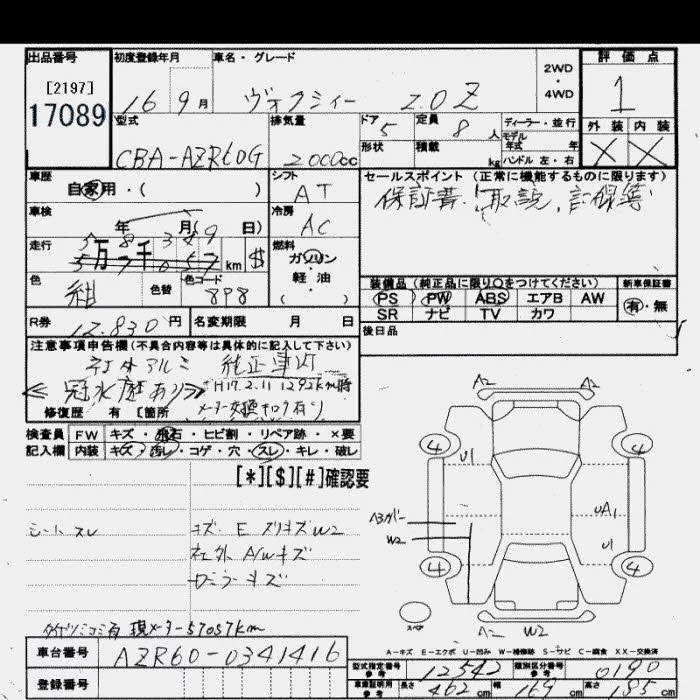 出品番号 初度登録年月 車名・グレード 2WD・4WD 評価点
[2197]
17089 16 9月 ヴォクシィー 2.0Z 1
型式 排気量 ドア 5 定員 8人 ディーラー・並行 外装 内装
モデル年式 年
CBA-AZR60G 2000cc 形状 積載 kg ハンドル 左・右 X X
車歴 シフト セールスポイント(正常に機能するものに限ります)
自家用・( ) AT 保証書、取説、記録簿
車検 冷房
年 月 9日) AC
走行 5万8千349
5 7 057 km $ 燃料
ガソリン
軽・油
( )
色 色替 色コード 装備品(純正品に限り○をつけてください) 新車保証書
紺 8P8 PS PW ABS エアB AW 有・無
SR ナビ TV カワ
R券 12,830円 名変期限 月 日 後日品
注意事項申告欄(不具合内容等は具体的に記入して下さい)
社外アルミ 純正車灯
≪冠水歴あり≫ H17.2.11 1292km時
修復歴 有 [箇所 メーター交換キロク有り
検査員 FW キズ・飛石・ヒビ割・リペア跡・×要
記入欄 内装 キズ・汚レ・コゲ・穴・スレ・キレ・破レ
[*][$][#]確認要
シートスレ キズ・E スリキズW2
社外A/Wキズ
ミラーキズ
A2 A2
4 4
U1
UA1
W2
U1
4 4
スペア A2 W2
現メーター57057km
A-キズ E-エクボ U-凹み W-補修跡 S-サビ C-腐食 XX-交換済
車台番号 AZR60-0341416 型式指定番号 参考 12542 類別区分番号 参考 0190
登録番号 車庫証明用 参考 長さ 462cm 幅 169cm 高さ 185cm